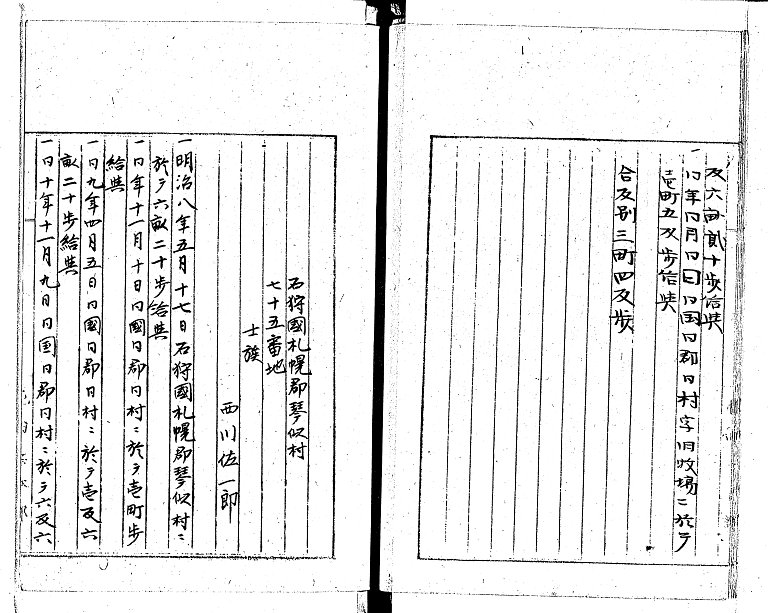 反六畝貳十歩給与
一同年同月同日同国同郡同村字旧牧場ニ於テ
壱町五反歩給与
合反別三町四反歩
石狩國札幌郡琴似村
七十五番地
士族
西川佐一郎
一明治八年五月十七日石狩國札幌郡琴似村ニ
於テ六畝二十歩給與
一同年十一月十日同國同郡同村ニ於テ壱町歩
給與
一同九年四月五日同國同郡同村ニ於テ壱反六
畝二十歩給與
一同十年十一月九日同国同郡同村ニ於テ六反六